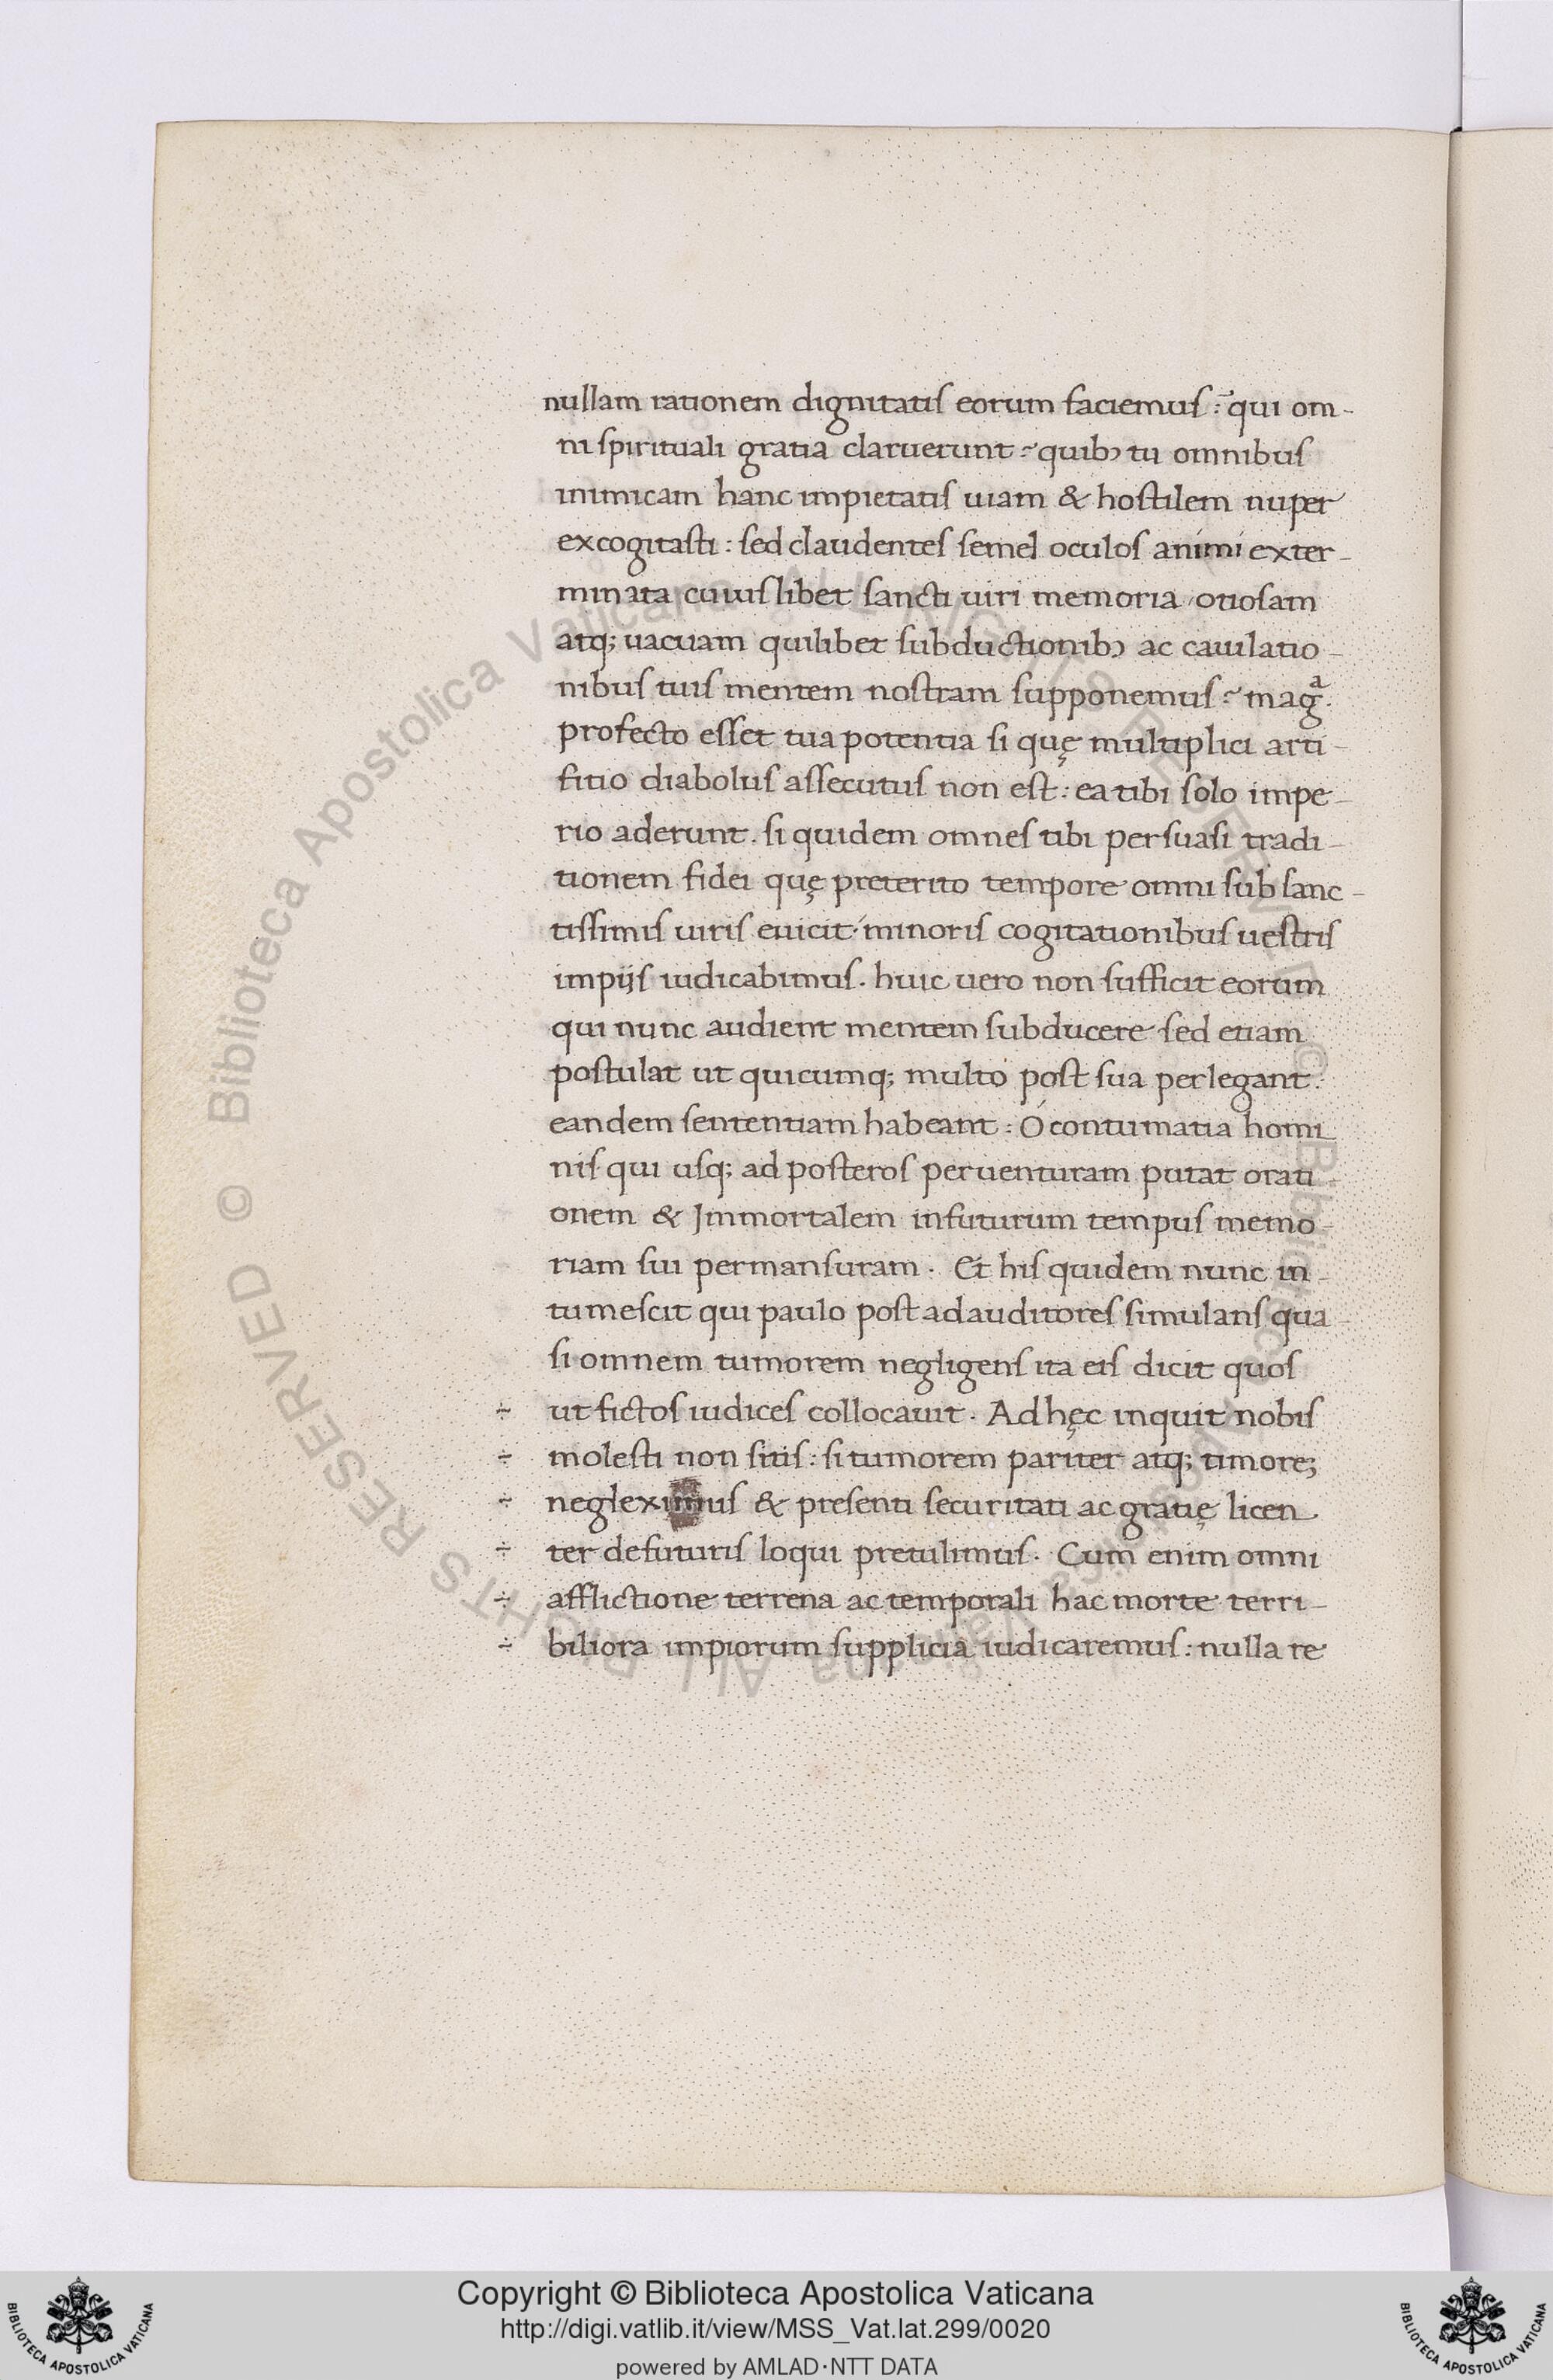 nullam rationem dignitatis eorum faciemus : qui om-
ni spirituali gratia claruerunt : quibꝰ tu omnibus
inimicam hanc impietatis uiam & hostilem nuper
excogitasti : sed claudentes semel oculos animi exter-
minata cuiuslibet sancti uiri memoria / otiosam
atq; uacuam quilibet subductionibꝰ ac cauilatio-
nibus tuis mentem nostram supponemus : magᵃ.
profecto esset tua potentia si quę multiplici arti-
fitio diabolus assecutus non est : ea tibi solo impe-
rio aderunt . si quidem omnes tibi persuasi tradi-
tionem fidei quę preterito tempore omni sub sanc-
tissimis uiris euicit minoris cogitationibus uestris
impijs iudicabimus . huic uero non sufficit eorum
qui nunc audient mentem subducere sed etiam
postulat ut quicumq; multo post sua perlegant .
eandem sententiam habeant : Ó contumatia homi-
nis qui usq; ad posteros peruenturam putat orati-
onem & Immortalem infuturum tempus memo-
riam sui permansuram . Et his quidem nunc in-
tumescit qui paulo post ad auditores simulans qua-
si omnem tumorem negligens ita eis dicit quos
÷ ut fictos iudices collocauit . Ad hęc inquit nobis
÷ molesti non sitis : si tumorem pariter atq; timorē;
÷ negleximus & presenti securitati ac gratię licen-
÷ ter defuturis loqui pretulimus . Cum enim omni
÷ afflictione terrena ac temporali hac morte terri-
÷ biliora impiorum supplicia iudicaremus : nulla re
© Biblioteca Apostolica Vaticana ALL RIGHTS RESERVED
© Biblioteca Apostolica Vaticana ALL RIGHTS RESERVED
Copyright © Biblioteca Apostolica Vaticana
http://digi.vatlib.it/view/MSS_Vat.lat.299/0020
powered by AMLAD·NTT DATA
BIBLIOTECA APOSTOLICA VATICANA
BIBLIOTECA APOSTOLICA VATICANA